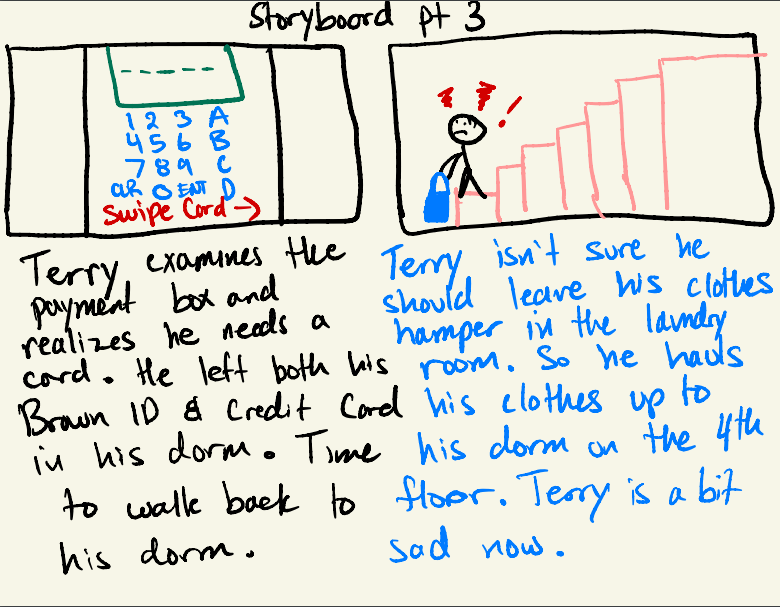 Storyboard pt 3
- - - - -
1 2 3 A
4 5 6 B
7 8 9 C
CLR 0 ENT D
Swipe Card →
Terry examines the
payment box and
realizes he needs a
card. He left both his
Brown ID & Credit Card
in his dorm. Time
to walk back to
his dorm.
!
Terry isn't sure he
should leave his clothes
hamper in the laundry
room. So he hauls
his clothes up to
his dorm on the 4th
floor. Terry is a bit
sad now.